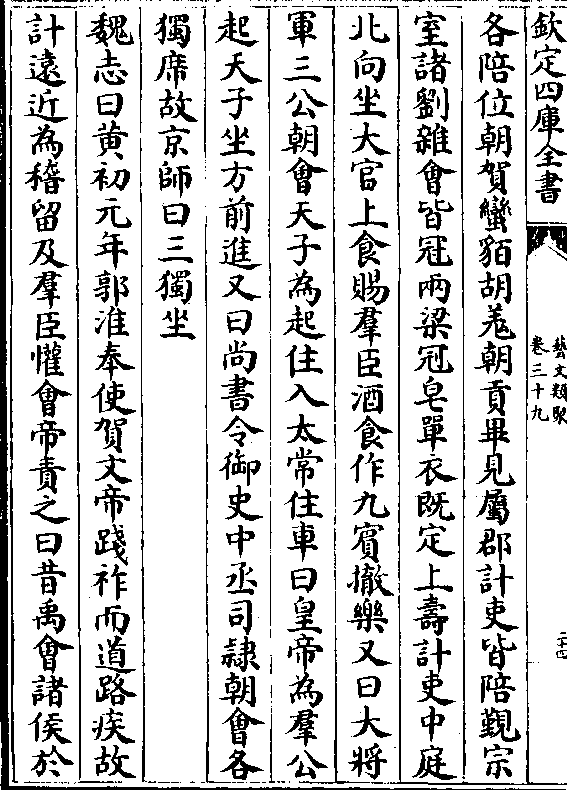 欽定四庫全書
藝文類聚
卷三十九
二十四
各陪位朝賀蠻貊胡羗朝貢畢見屬郡計吏皆陪覲宗
室諸劉雜會皆冠兩梁冠皂單衣既定上壽計吏中庭
北向坐大官上食賜羣臣酒食作九賓撤樂又曰大將
軍三公朝會天子為起住入太常住車曰皇帝為羣公
起天子坐方前進又曰尚書令御史中丞司隸朝會各
獨席故京師曰三獨坐
魏志曰黄初元年郭淮奉使賀文帝踐祚而道路疾故
計遠近為稽留及羣臣懽會帝責之曰昔禹會諸侯於